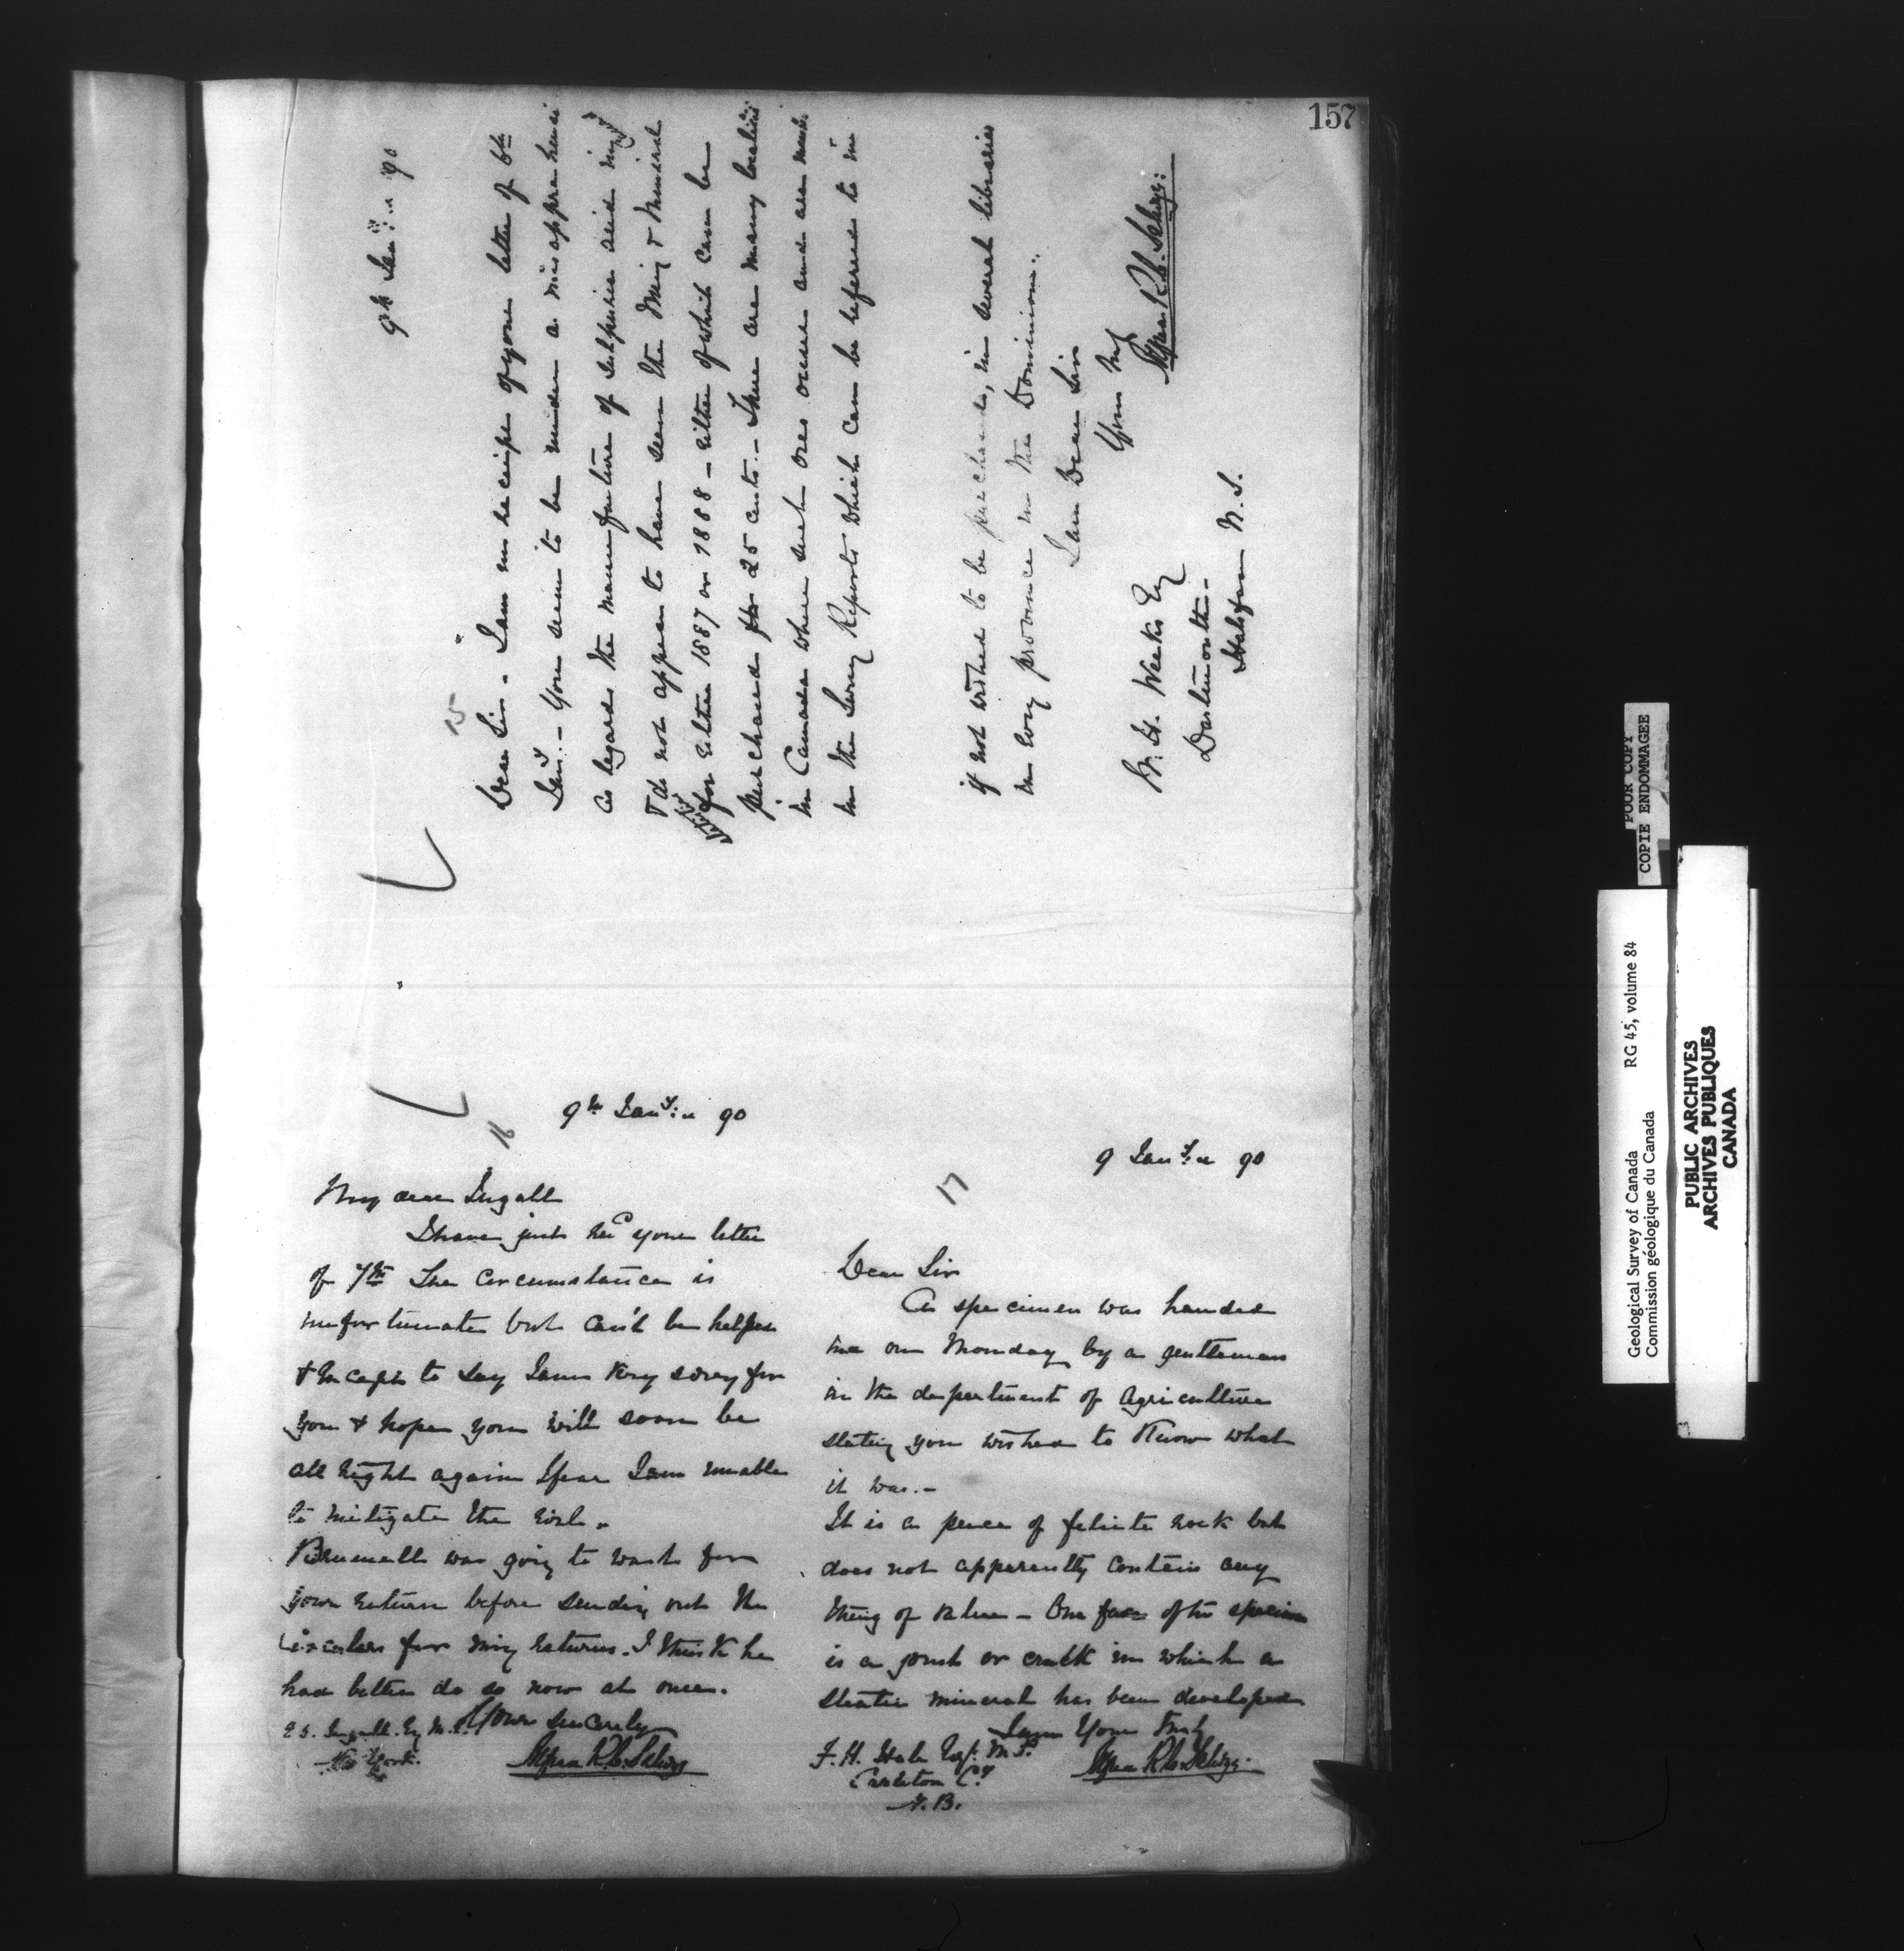 157
15
9th Jany. 90
Dear Sir. I am in receipt of your letter of 6th
Jany. - You seem to be under a misapprehensi
as regards the manufacture of Sulphuric acid
& do not appear to have seen the Ming & Mineral
for either 1887 or 1888 - either of which can be
purchased for 25 cents. - There are many localities
in Canada where such ores occur and are
in the Survey Reports which can be referred to in
if not wished to be purchased, in several libraries
in every province in the Dominion.
I am Dear Sir
Yours
Alfred R. C. Selwyn
Weeks Esq
Dartmouth.
Halifax N.S.
16
9th Jany. 90
My dear Ingall
I have just recd your letter
of 7th The circumstance is
unfortunate but can't be helped
& except to say I am very sorry for
you & hope you will soon be
all right again I fear I am unable
to mitigate the evil.
Brumell was going to wait for
your return before sending out the
circulars for ming returns. I think he
had better do so now at once.
Yours sincerely
Ingall. Esq M.E.
New York.
Alfred R. C. Selwyn
17
9 Jany. 90
Dear Sir
A specimen was handed
me on Monday by a gentleman
in the department of Agriculture
stating you wished to know what
it was.-
It is a peice of felsite rock but
does not apparently contain any
thing of value - One face of the specimen
is a joint or crack in which a
steatic mineral has been developed
I am Yours Truly
F. H. Hale Esq. M.P.
Carleton Cy
N.B.
Alfred R. C. Selwyn
POOR COPY
COPIE ENDOMMAGEE
Geological Survey of Canada RG 45, volume 84
Commission géologique du Canada
PUBLIC ARCHIVES
ARCHIVES PUBLIQUES
CANADA